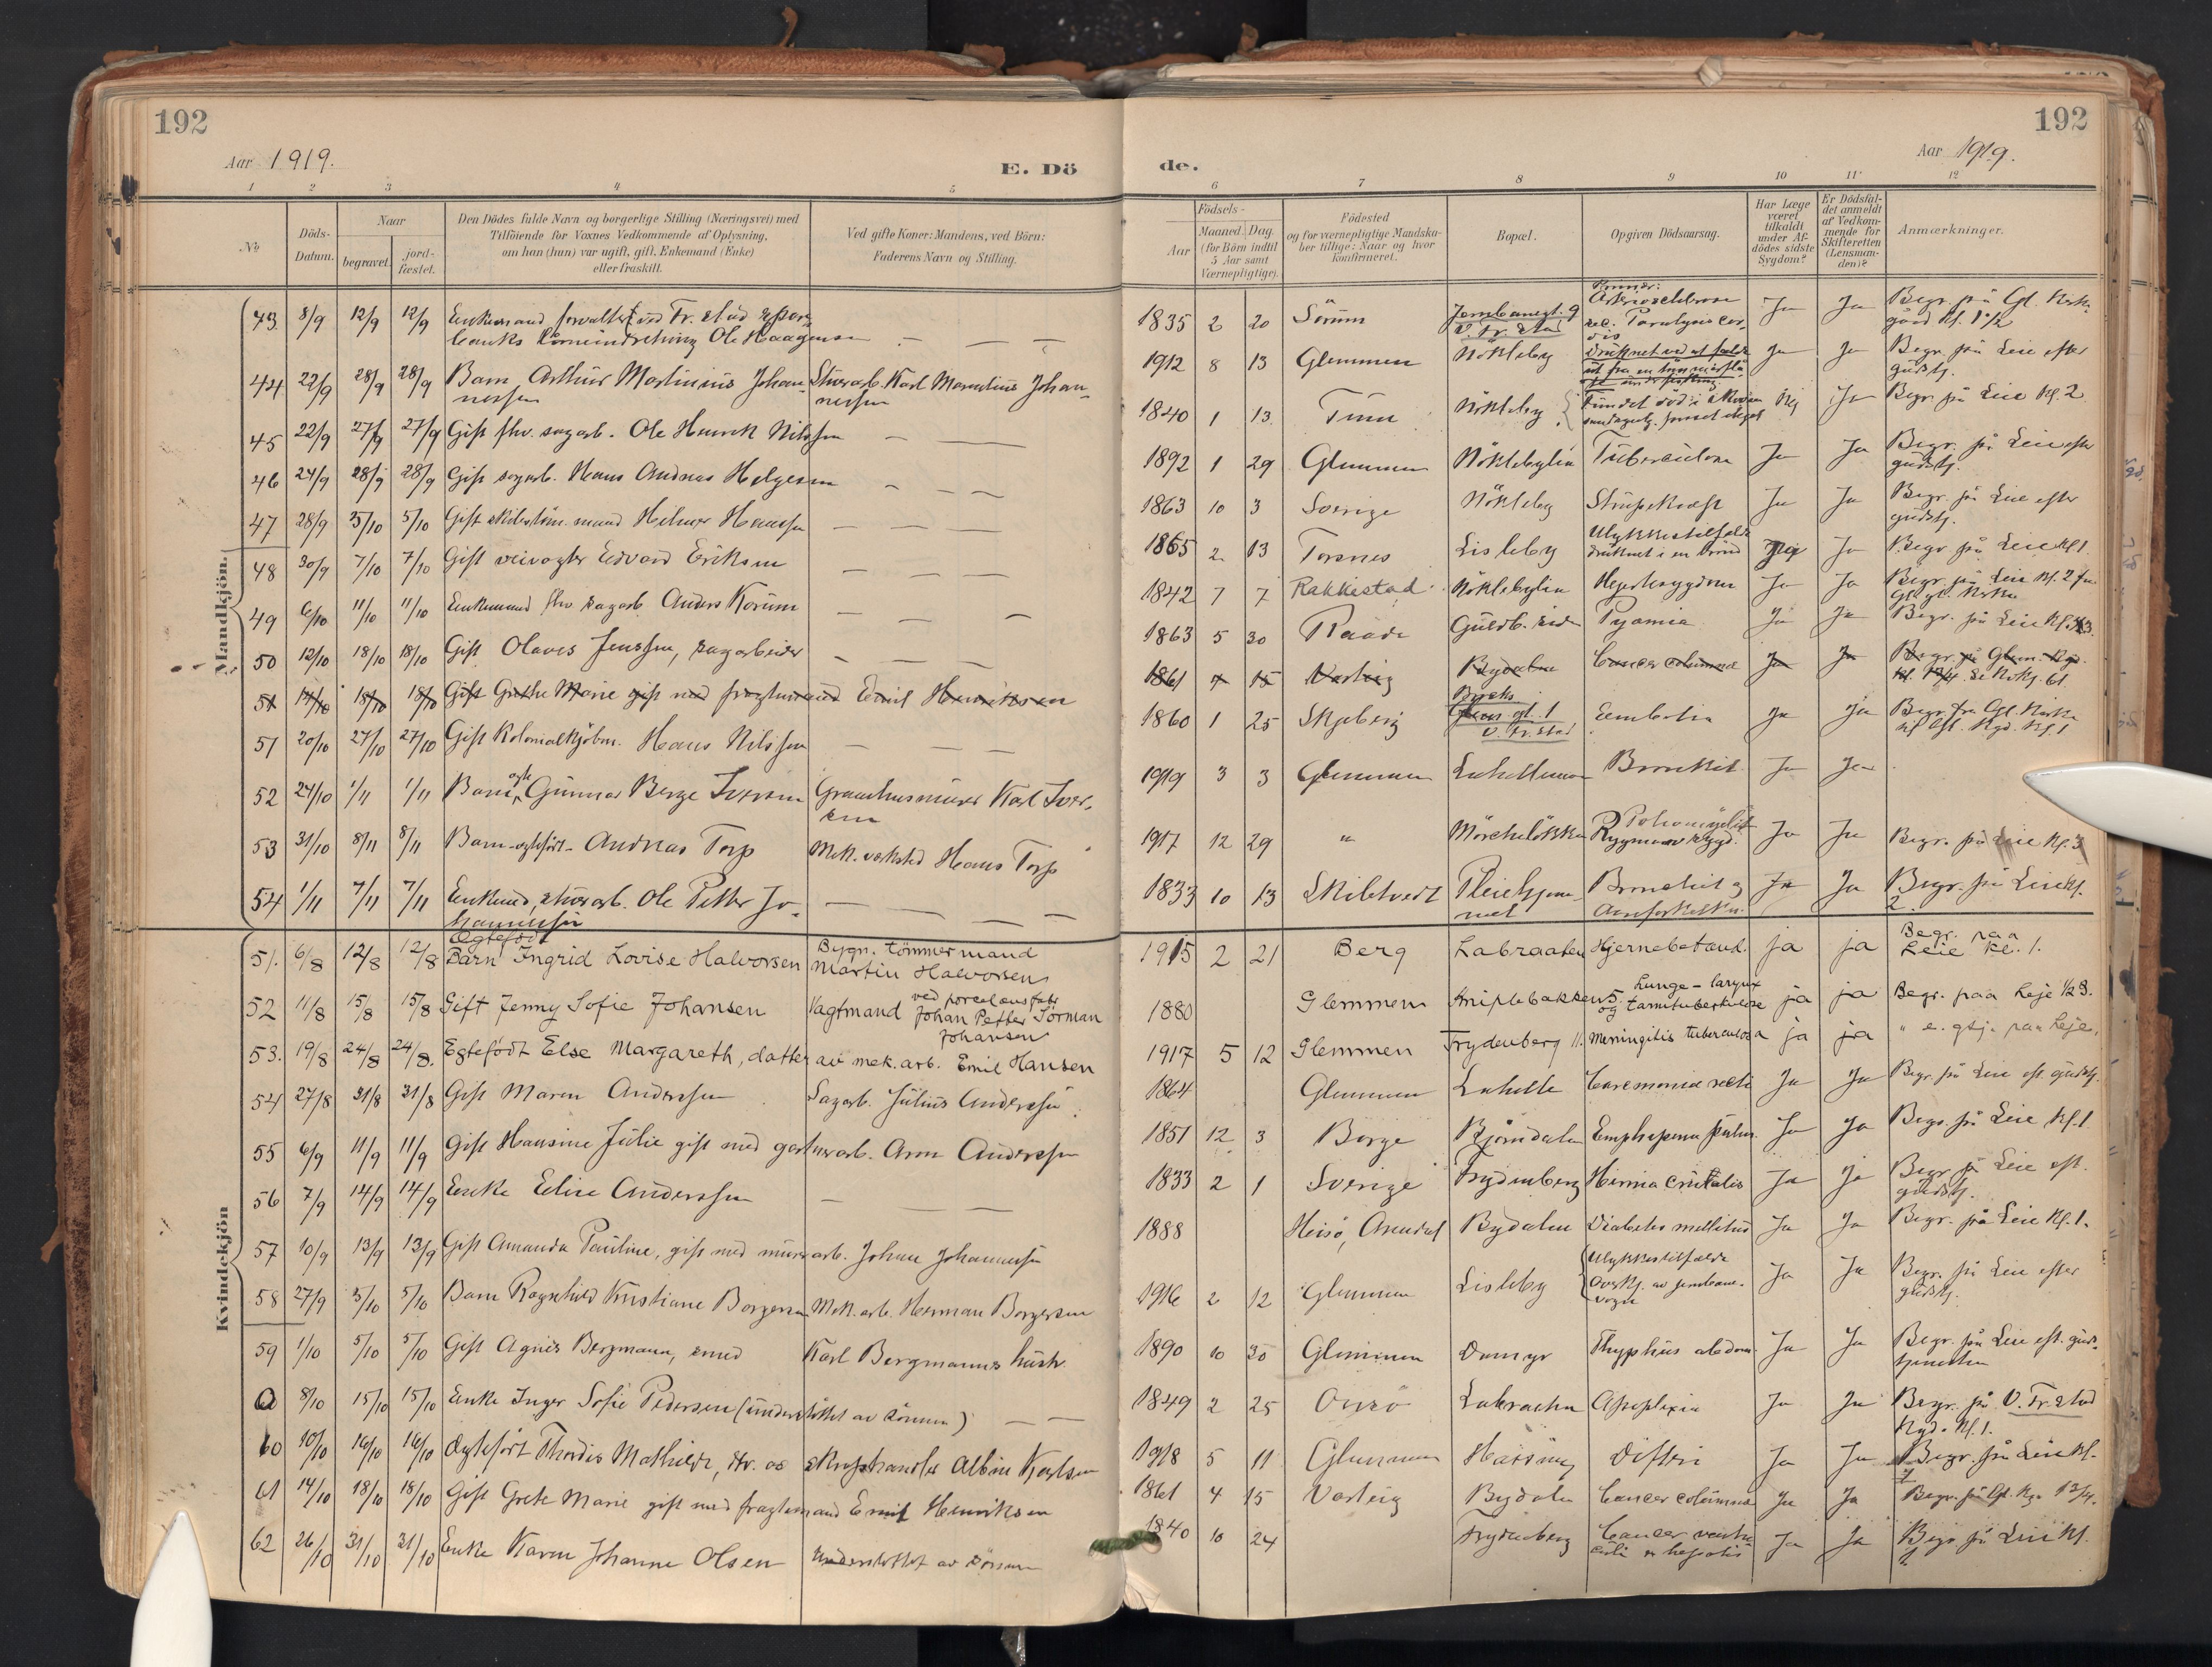 192
192
Aar 1919.
E. Dö
de.
Aar 1919.
1 2 3 4 5
6 7 8 9 10 11 12
No
Döds-
Datum.
Naar
begravet.
jord-
fæstet.
Den Dödes fulde Navn og borgerlige Stilling (Næringsvei) med
Tilföiende for Voxnes Vedkommende af Oplysning,
om han (hun) var ugift, gift, Enkemand (Enke)
eller fraskilt.
Ved gifte Koner: Mandens, ved Börn:
Faderens Navn og Stilling.
Födsels-
Aar
Maaned. Dag.
(for Börn indtil
5 Aar samt
Værnepligtige).
Födested
og for værnepligtige Mandska-
ber tillige: Naar og hvor
konfirmeret.
Bopæl.
Opgiven Dödsaarsag.
Har Læge
været
tilkaldt
under Af-
dödes sidste
Sygdom?
Er Dödsfal-
det anmeldt
af Vedkom-
mende for
Skifteretten
(Lensman-
den)?
Anmærkninger.
Mandkjön.
43 8/9 12/9 12/9 Enkemand forvalter ved Fr.stad Spare-
banks Ole Haagensen — — —
1835 2 20 Sörum V. Fr.stad Ja Ja Begr. på Gl. Kirke-
gård Kl. 1 1/2
44 22/9 28/9 28/9 Barn, Arthur Martinius Johan-
nessen
Karl Johan-
nessen
1912 8 13 Glemmen Nökleby Druknet ved at falde Ja Ja Begr. på Leie efter
gudstj.
45 22/9 27/9 27/9 Gift fhv. sagarb. Ole Henrik Nilssen — —
1840 1 13 Tune Nökleby Fundet död i skoven Nei Ja Begr. på Leie Kl. 2
46 24/9 28/9 28/9 Gift sagarb. Hans Andreas Helgesen — — —
1892 1 29 Glemmen Nöklebylia Tuberculose Ja Ja Begr. på Leie efter
gudstj.
47 28/9 5/10 5/10 Gift mand Hilmer Hanssen — — —
1863 10 3 Sverige Nökleby Strupekræft Ja Ja Begr. på Leie efter
gudstj.
48 30/9 7/10 7/10 Gift veivogter Edvard Eriksen — — —
1865 2 13 Torsnes Lisleby Ulykkestilfælde
druknet i en brönd Nei Ja Begr. på Leie Kl. 1.
49 6/10 11/10 11/10 Enkemand fhv. sagarb. Anders Korum — — —
1842 7 7 Rakkestad Nöklebylia Hjertesygdom Ja Ja Begr. på Leie Kl. 2 fra
Gl. Kirke
50 12/10 18/10 18/10 Gift Olaves Jenssen, sagarbeider — — —
1863 5 30 Raade Guldb. siden Pyämia Ja Ja Begr. på Leie Kl. 3.
51 14/10 18/10 18/10 Gift Grethe Marie gift med fragtemand Emil Henriksen
1861 4 15 Varteig Bydalen Cancer columna Ja Ja Begr. på Glem. Kgd.
Kl. 1 3/4. Se Kvkj. 61.
51 20/10 27/10 27/10 Gift Kolonialkjöbm. Hans Nilssen — — —
1860 1 25 Skjeberg gt. 1
V. Fr.stad Embolia Ja Ja Begr. fra Gl. Kirke
til Gl. Kgd. Kl. 1
52 24/10 1/11 1/11 Barn, Gunnar Berge Iversen Karl Iver-
sen
1919 3 3 Glemmen Bronkit Ja Ja
53 31/10 8/11 8/11 Barn - Andreas Torp Mek. verksted Hans Torp
1917 12 29 " Poliomyelit
Rygmarvsygd. Ja Ja Begr. på Leie Kl. 3
54 1/11 7/11 7/11 Enkemd., Ole Petter Jo-
hannessen — — — —
1833 10 13 Skibtvedt Pleiehjem-
met Bronchit og Ja Ja Begr. på Leie Kl.
2.
Kvindekjön
51. 6/8 12/8 12/8 Egtefödt
Barn Ingrid Lovise Halvorsen Bygn. tömmermand
Martin Halvorsen
1915 2 21 Berg Labraaten Hjernebetend. ja ja Begr. paa
Leie Kl. 1.
52 11/8 15/8 15/8 Gift Jenny Sofie Johansen Vagtmand ved porcelænsfabr.
Johan Petter Sörman
Johansen
1880 Glemmen Kniplebakken 5. Lunge- larynx
og tarmtuberkulose ja ja Begr. paa Leje 1/2 3.
53. 19/8 24/8 24/8. Egtefödt Else Margareth, datter av mek. arb. Emil Hansen
1917 5 12 Glemmen Frydenberg 11. Meningitis tuberculosa ja ja " e. gtj. paa Leje.
54 27/8 31/8 31/8 Gift Maren Anderssen Sagarb. Julius Anderssen.
1864 Glemmen Ja Ja Begr. på Leie eft. gudstj.
55 6/9 11/9 11/9 Gift Hansine Julie gift med gartnerarb. Arne Anderssen
1851 12 3 Borge Bjørndalen Ja Ja Begr. på Leie Kl. 1
56 7/9 14/9 14/9 Enke Eline Anderssen — — —
1833 2 1 Sverige Frydenberg Hernia cruralis Ja Ja Begr. på Leie eft.
gudstj.
57 10/9 13/9 13/9 Gift Amanda Pauline, gift med murerarb. Johan Johannessen
1888 Hisö, Arendal Bydalen Diabetes mellitus Ja Ja Begr. på Leie Kl. 1.
58 27/9 5/10 5/10 Barn Ragnhild Kristiane Borgersen Mek. arb. Herman Borgersen
1916 2 12 Glemmen Lisleby Ulykkestilfælde
Overkj. av jernbane-
vogn Ja Ja Begr. på Leie efter
gudstj.
59 1/10 5/10 5/10 Gift Agnes Bergmann, smed Karl Bergmanns hustr.
1890 10 30 Glemmen Dammyr Thyphus abdom. Ja Ja Begr. på Leie eft. guds-
tjenesten
8/10 15/10 15/10 Enke Inger Sofie Pedersen (understöttet av sönnen) — —
1849 2 25 Onsö Labraaten Apoplexia Ja Ja Begr. på V. Fr.stad
Kgd. Kl. 1.
60 10/10 16/10 16/10 Ægtefödt Thordis Mathilde, dtr. av skraphandler Albin Karlsen
1918 5 11 Glemmen Difteri Ja Ja Begr. på Leie Kl.
1
61 14/10 18/10 18/10 Gift Grete Marie gift med fragtemand Emil Henriksen
1861 4 15 Varteig Bydalen Cancer columna Ja Ja Begr. på Gl. Kgd. 1 3/4.
62 26/10 31/10 31/10 Enke Karen Johanne Olsen understöttet av sönnen
1840 10 24 Frydenberg Cancer ventri-
culi et hepatis Ja Ja Begr. på Leie Kl.